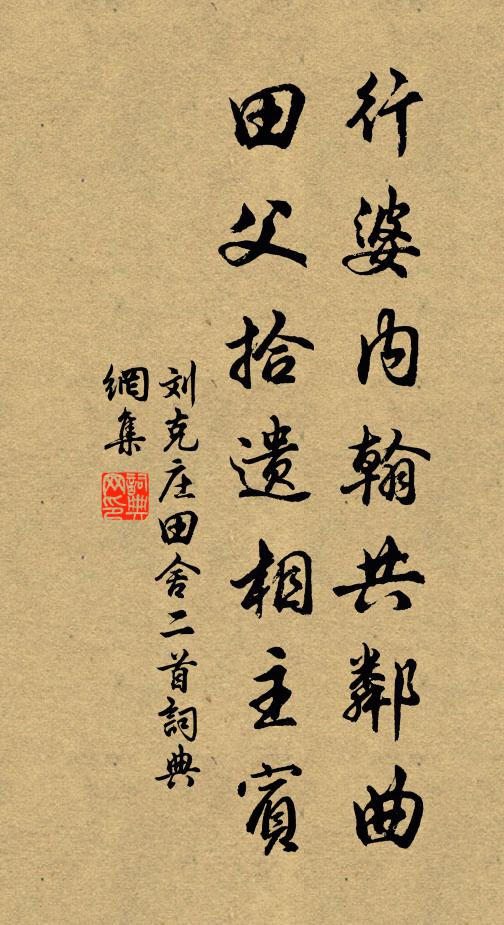 行婆内翰共鄰曲
田父拾遗相主賓
刘克庄田舍二首詞典
網集
詞典
网印